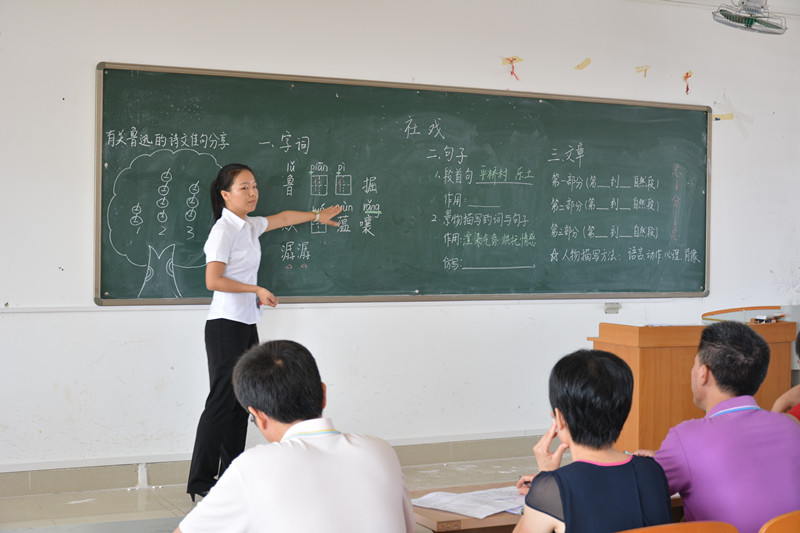 有关鲁迅的诗文佳句分享
1 2 3
一、字词
lǔ piān pì
鲁 掘
yùn rǎng
蕴 嚷
潺潺
社戏
二、句子
1、段首句 平桥村 乐土
作用:
2、景物描写的词与句子
作用:渲染气氛 烘托情感
仿写:
三、文章
第一部分(第__到__自然段)
第二部分(第__到__自然段)
第三部分(第__到__自然段)
☆人物描写方法:语言 动作 心理 肖像